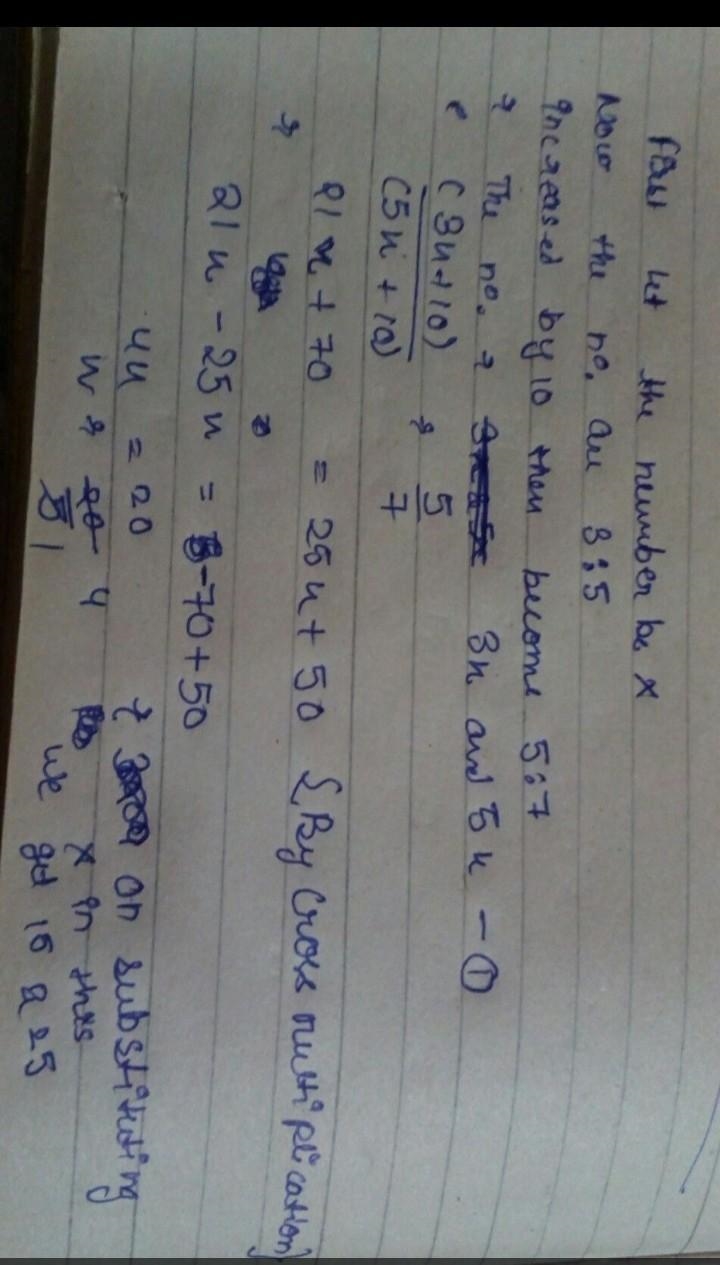 First let the number be x
Now the no. are 3:5
increased by 10 then become 5:7
→ The no. → 3x and 5x — ①
(3x+10) / (5x+10) → 5/7
21x + 70 = 25x + 50 {By Cross multiplication}
→
21x - 25x = -70+50
4x = 20 } on substituting
x → 20 4 x in this
5 1 we get 15 & 25